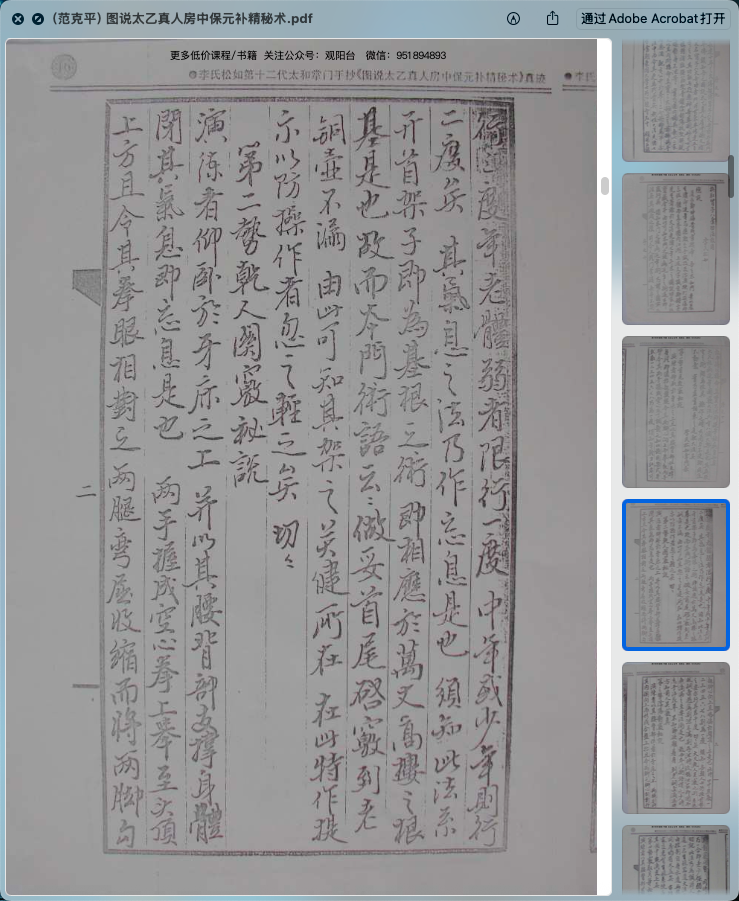 （范克平）图说太乙真人房中保元补精秘术.pdf
通过Adobe Acrobat打开
更多低价课程/书籍 关注公众号：观阳台 微信：951894893
●李氏松如第十二代太和掌门手抄《图说太乙真人房中保元补精秘术》真迹
●李氏
衍一度年老體弱者限行一度 中年或少年則行
二度矣 其氣息之法乃作忘息是也 須知此法系
开首架子即為基根之術 即相應於萬丈高樓之根
基是也故而本門術語云:做妥首尾啓竅到老
铜壶不漏 由此可知其架之关健所在 在此特作提
示以防操作者忽之輕之矣 切々
第二勢乾人關竅秘説
演练者仰卧於牙床之上 并以其腰背部支撑身體
閉其氣息即忘息是也 两手握成空心拳上舉至头頂
上方且令其拳眼相對之两腿弯屈收缩而將两脚勾
二